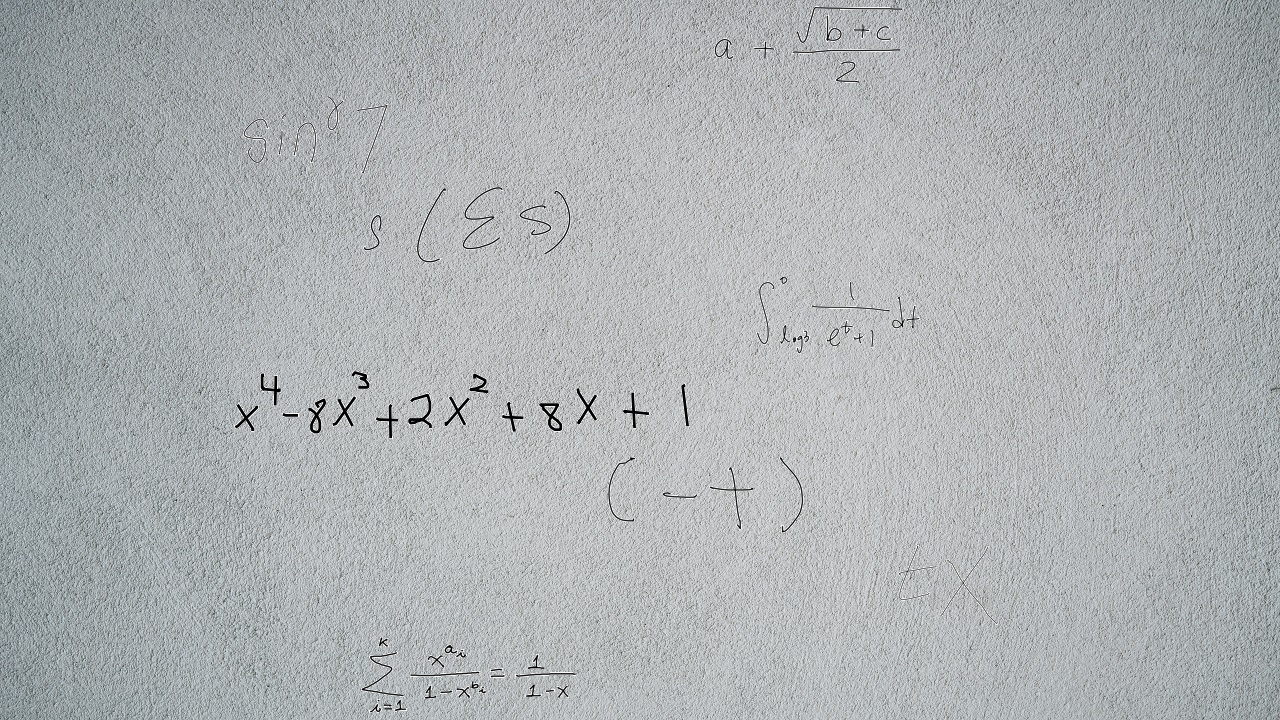 a + √(b+c)/2
sin^γ 7
s (Σs)
∫_{log3}^{0} 1/(e^t+1) dt
x^4-8x^3+2x^2+8x+1
(-+)
≠x
∑_{i=1}^{k} x^{a_i}/(1-x^{b_i}) = 1/(1-x)